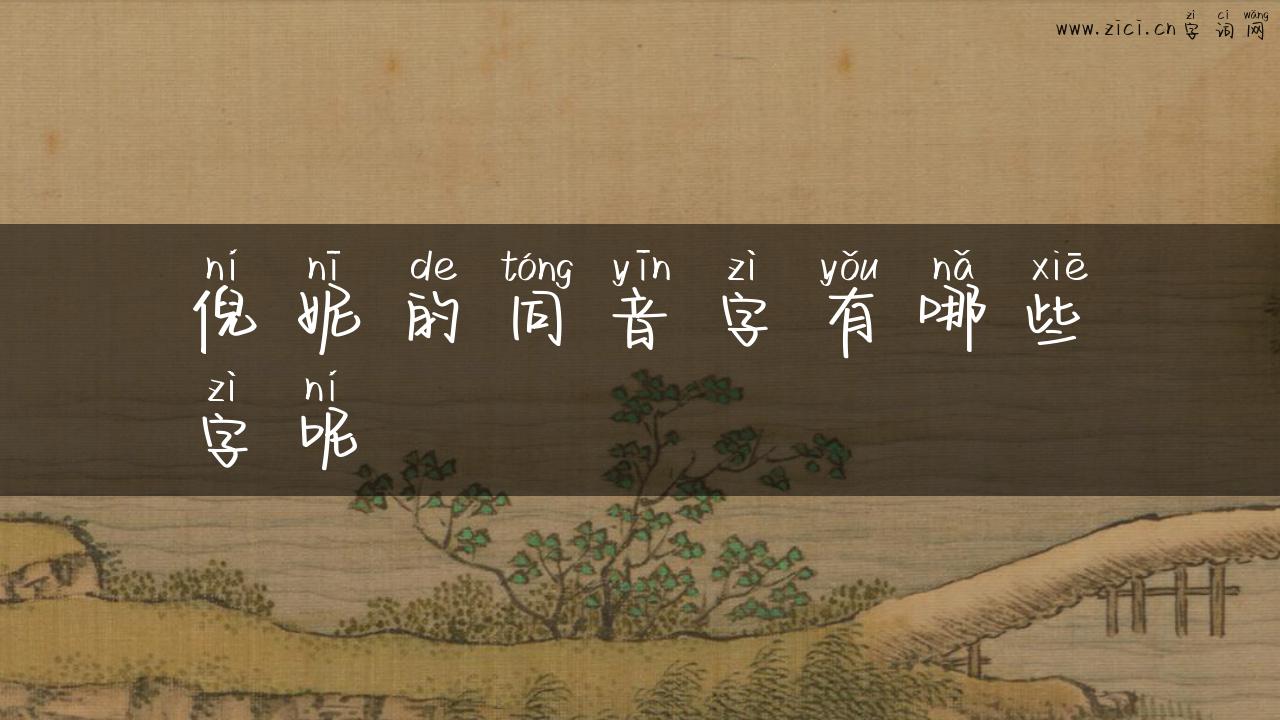 zì cí wǎng
www.zici.cn 字词网
ní nī de tóng yīn zì yǒu nǎ xiē
倪妮的同音字有哪些
zì ní
字呢